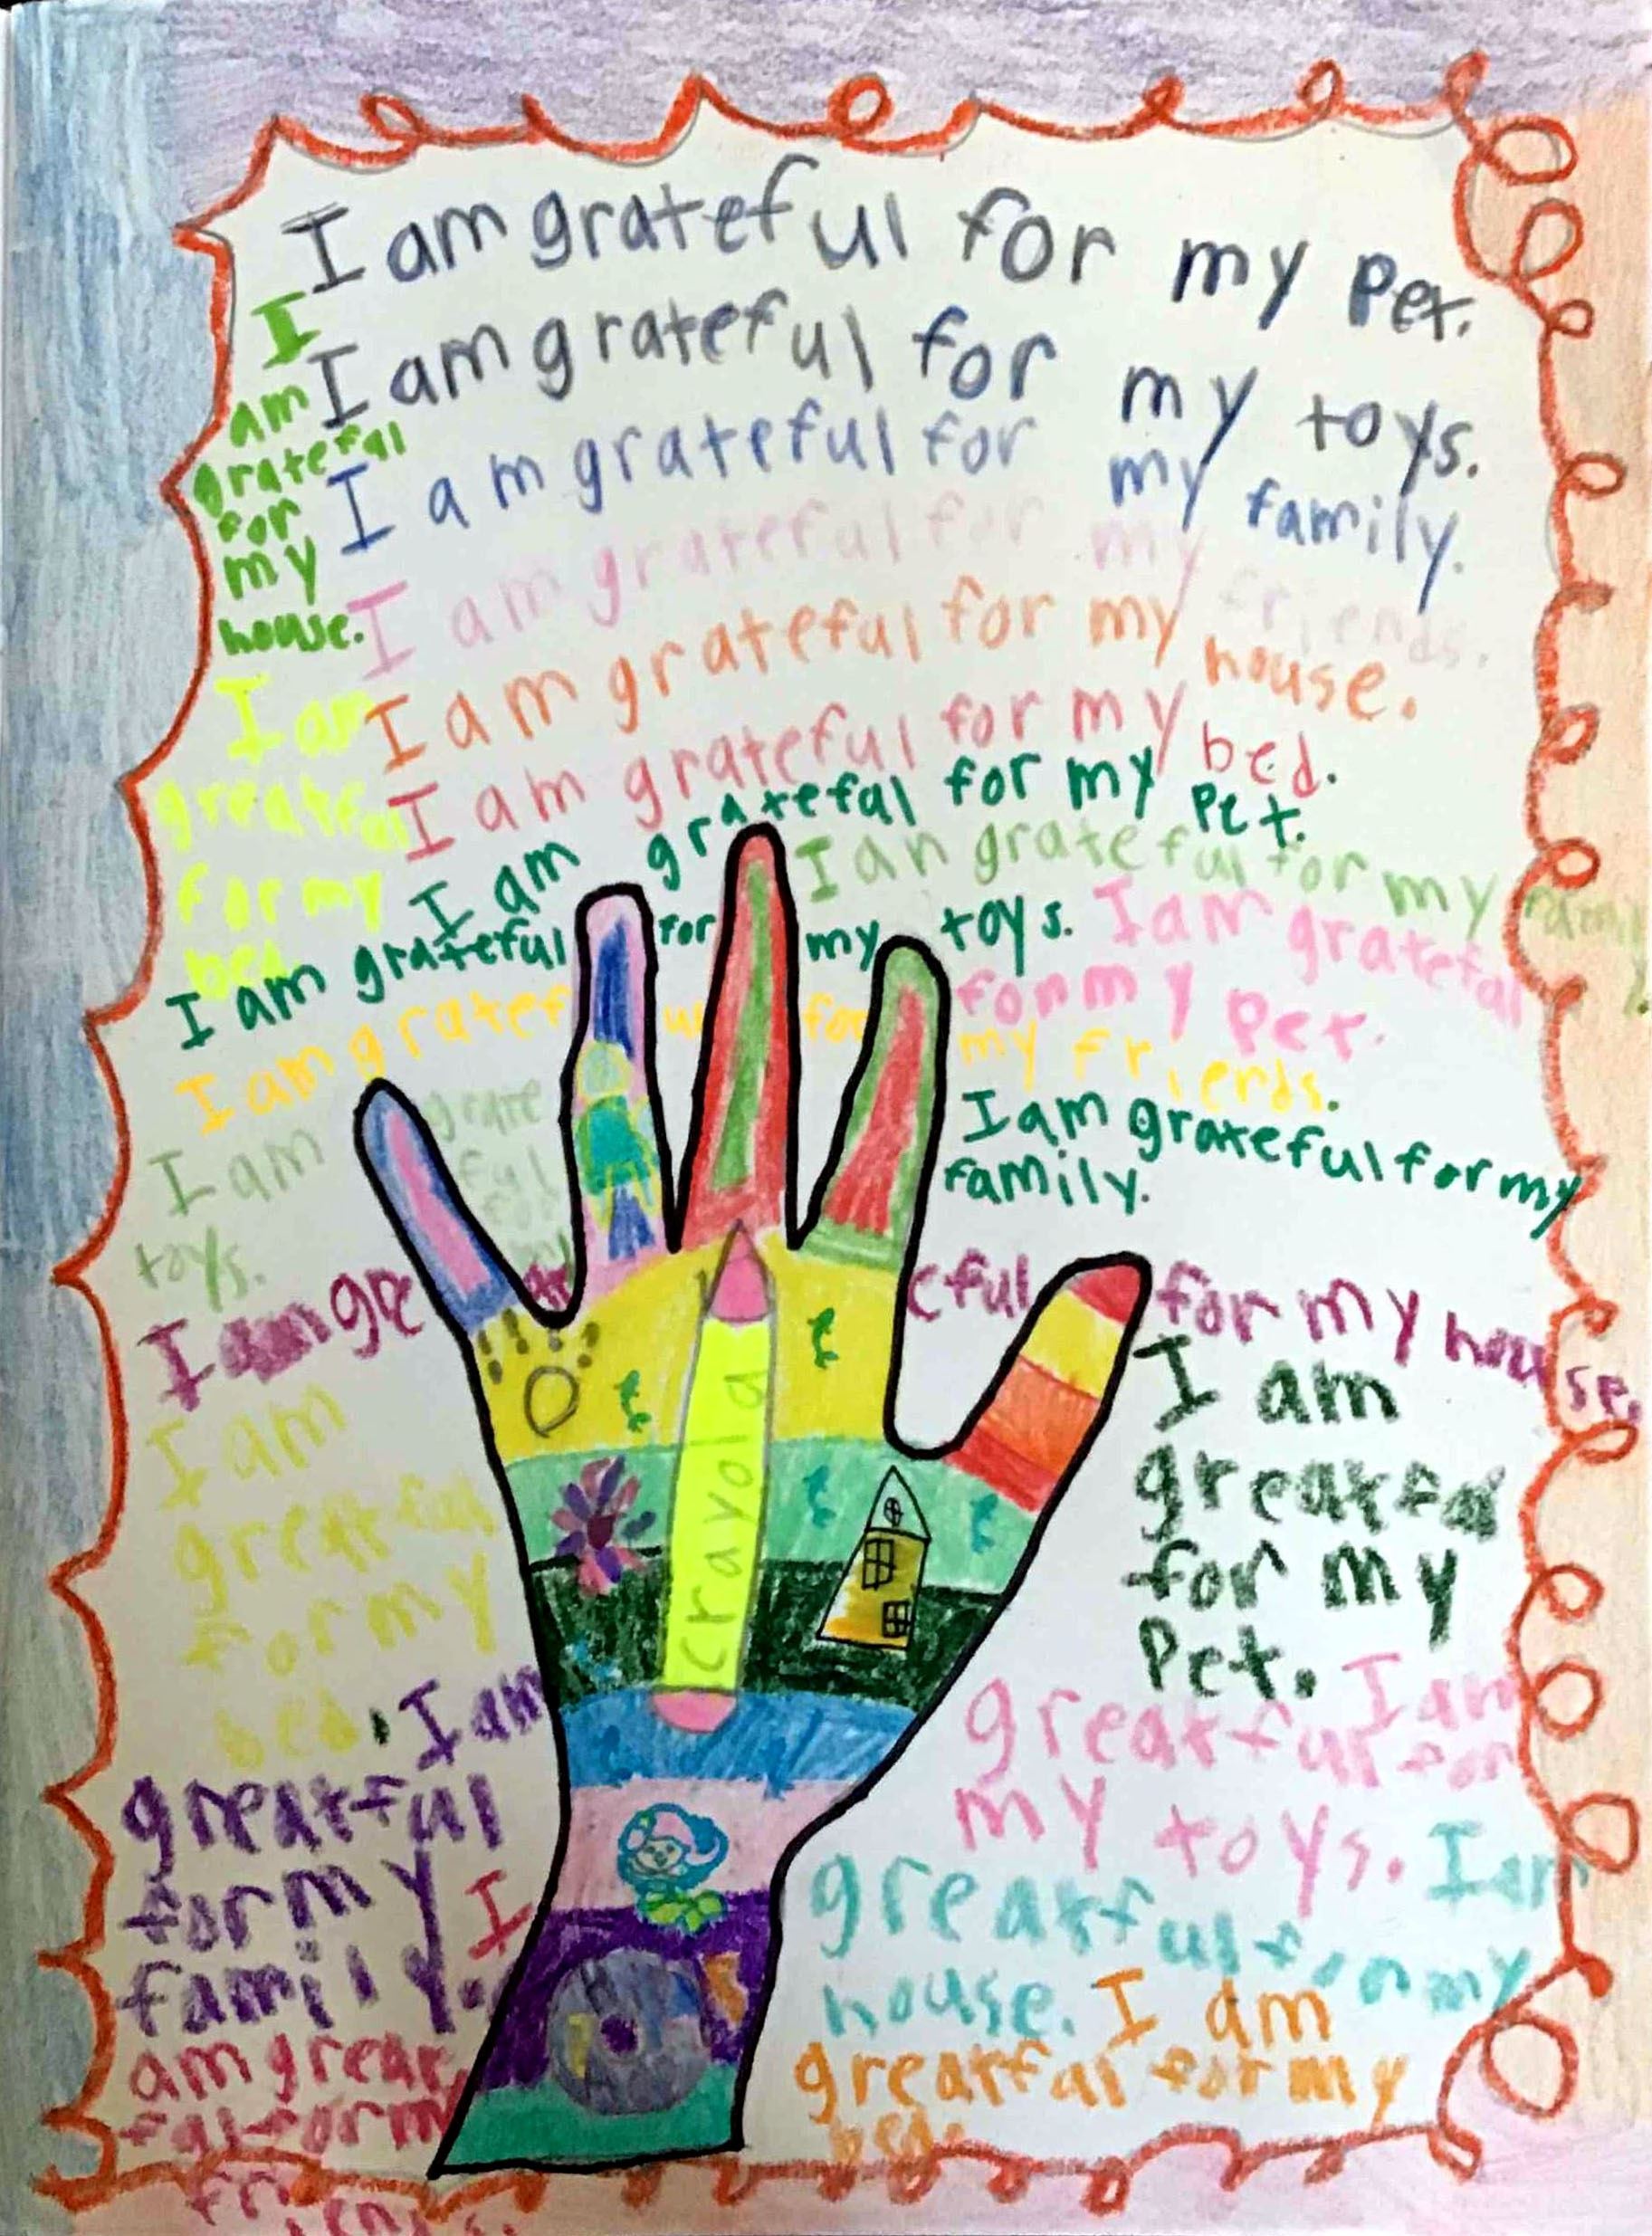 I am grateful for my pet.
I am grateful for my toys.
I am grateful for my family.
I am grateful for my friends.
I am grateful for my house.
I am grateful for my bed.
I
am
grateful
for
my
house.
I am
greatful
for my
bed
I am grateful for my pet.
I am grateful for my family
I am grateful for my toys.
I am grateful
for my pet.
I am grateful for my friends.
I am grateful for my
family.
I am grate
ful
for
my
toys.
I am gre eful for my house.
I am
greatful
for my
bed.
I am
greatful
for my
pet.
I am
greatful
for my
family.
I
am great
ful for m
friends.
I am
greatful for
my toys.
I am
greatful for my
house.
I am
greatful for my
bed.
crayola